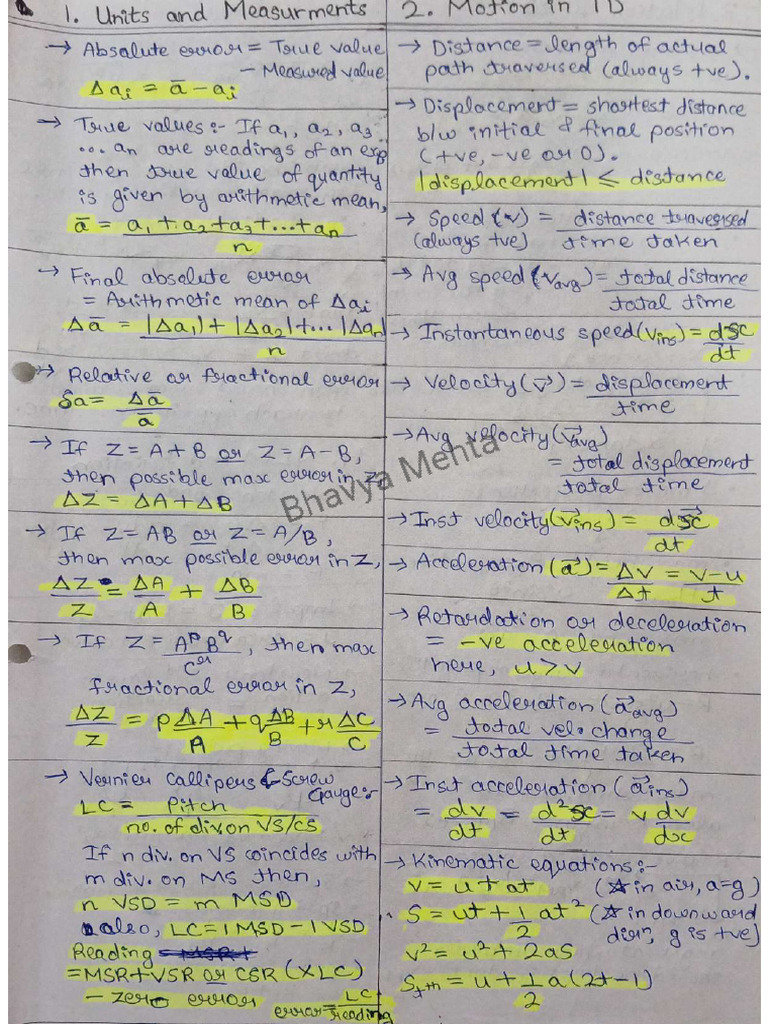 1. Units and Measurments
→ Absolute error = True value
- Measured value
Δaᵢ = a̅ - aᵢ
→ True values :- If a₁, a₂, a₃
... aₙ are readings of an exp
then true value of quantity
is given by arithmetic mean,
a̅ = a₁ + a₂ + a₃ + ... + aₙ
n
→ Final absolute error
= Arithmetic mean of Δaᵢ
Δa̅ = |Δa₁| + |Δa₂| + ... |Δaₙ|
n
→ Relative or fractional error
δa = Δa̅
a̅
→ If Z = A + B or Z = A - B,
then possible max error in Z,
ΔZ = ΔA + ΔB
→ If Z = AB or Z = A/B,
then max possible error in Z,
ΔZ = ΔA + ΔB
Z A B
→ If Z = AᵖB^q, then max
Cʳ
fractional error in Z,
ΔZ = pΔA + qΔB + rΔC
Z A B C
→ Vernier Callipers & Screw
Gauge :-
LC = Pitch
no. of div on VS/CS
If n div. on VS coincides with
m div. on MS then,
n VSD = m MSD
also, LC = 1 MSD - 1 VSD
Reading
= MSR + VSR or CSR (X LC)
- zero error
error = LC
reading
2. Motion in 1D
→ Distance = length of actual
path traversed (always +ve).
→ Displacement = shortest distance
b/w initial & final position
(+ve, -ve or 0).
|displacement| ≤ distance
→ Speed (v) = distance traversed
(always +ve) time taken
→ Avg speed (v_avg) = total distance
total time
→ Instantaneous speed (v_ins) = dx
dt
→ Velocity (v⃗) = displacement
time
→ Avg velocity (v⃗_avg)
= total displacement
total time
→ Inst velocity (v⃗_ins) = dx⃗
dt
→ Acceleration (a⃗) = Δv = v-u
Δt t
→ Retardation or deceleration
= -ve acceleration
here, u > v
→ Avg acceleration (a⃗_avg)
= total velo change
total time taken
→ Inst acceleration (a⃗_ins)
= dv = d²x = v dv
dt dt dx
→ Kinematic equations :-
v = u + at (☆ in air, a=g)
S = ut + 1 at² (☆ in downward
2 dirⁿ, g is +ve)
v² = u² + 2aS
S_tth = u + 1 a(2t-1)
2
Bhavya Mehta